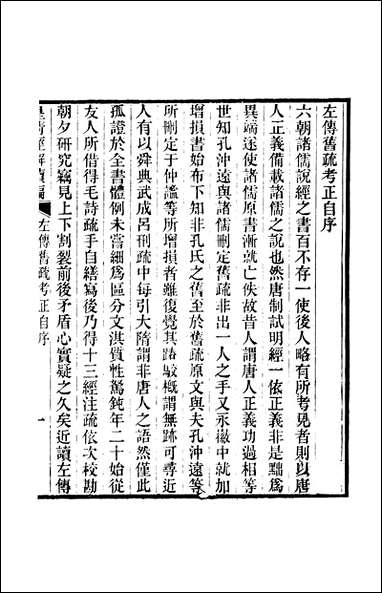 左傳舊疏考正自序
六朝諸儒說經之書百不存一使後人略有所考見者則以唐
人正義備載諸儒之說也然唐制試明經一依正義非是黜爲
異端遂使諸儒原書漸就亡佚故昔人謂唐人正義功過相等
世知孔沖遠與諸儒刪定舊疏非出一人之手又永徽中就加
增損書始布下知非孔氏之舊至於舊疏原文與夫孔沖遠等
所刪定于仲謐等所增損者雖復覺其踳駁槪謂無跡可尋近
人有以舜典武成呂刑疏中每引大隋謂非唐人之語然僅此
孤證於全書體例未嘗細爲區分文淇質性駑鈍年二十始從
友人所借得毛詩疏手自繕寫後乃得十三經注疏依次校勘
朝夕研究竊見上下割裂前後矛盾心實疑之久矣近讀左傳
皇淸經解續編
左傳舊疏考正自序
一